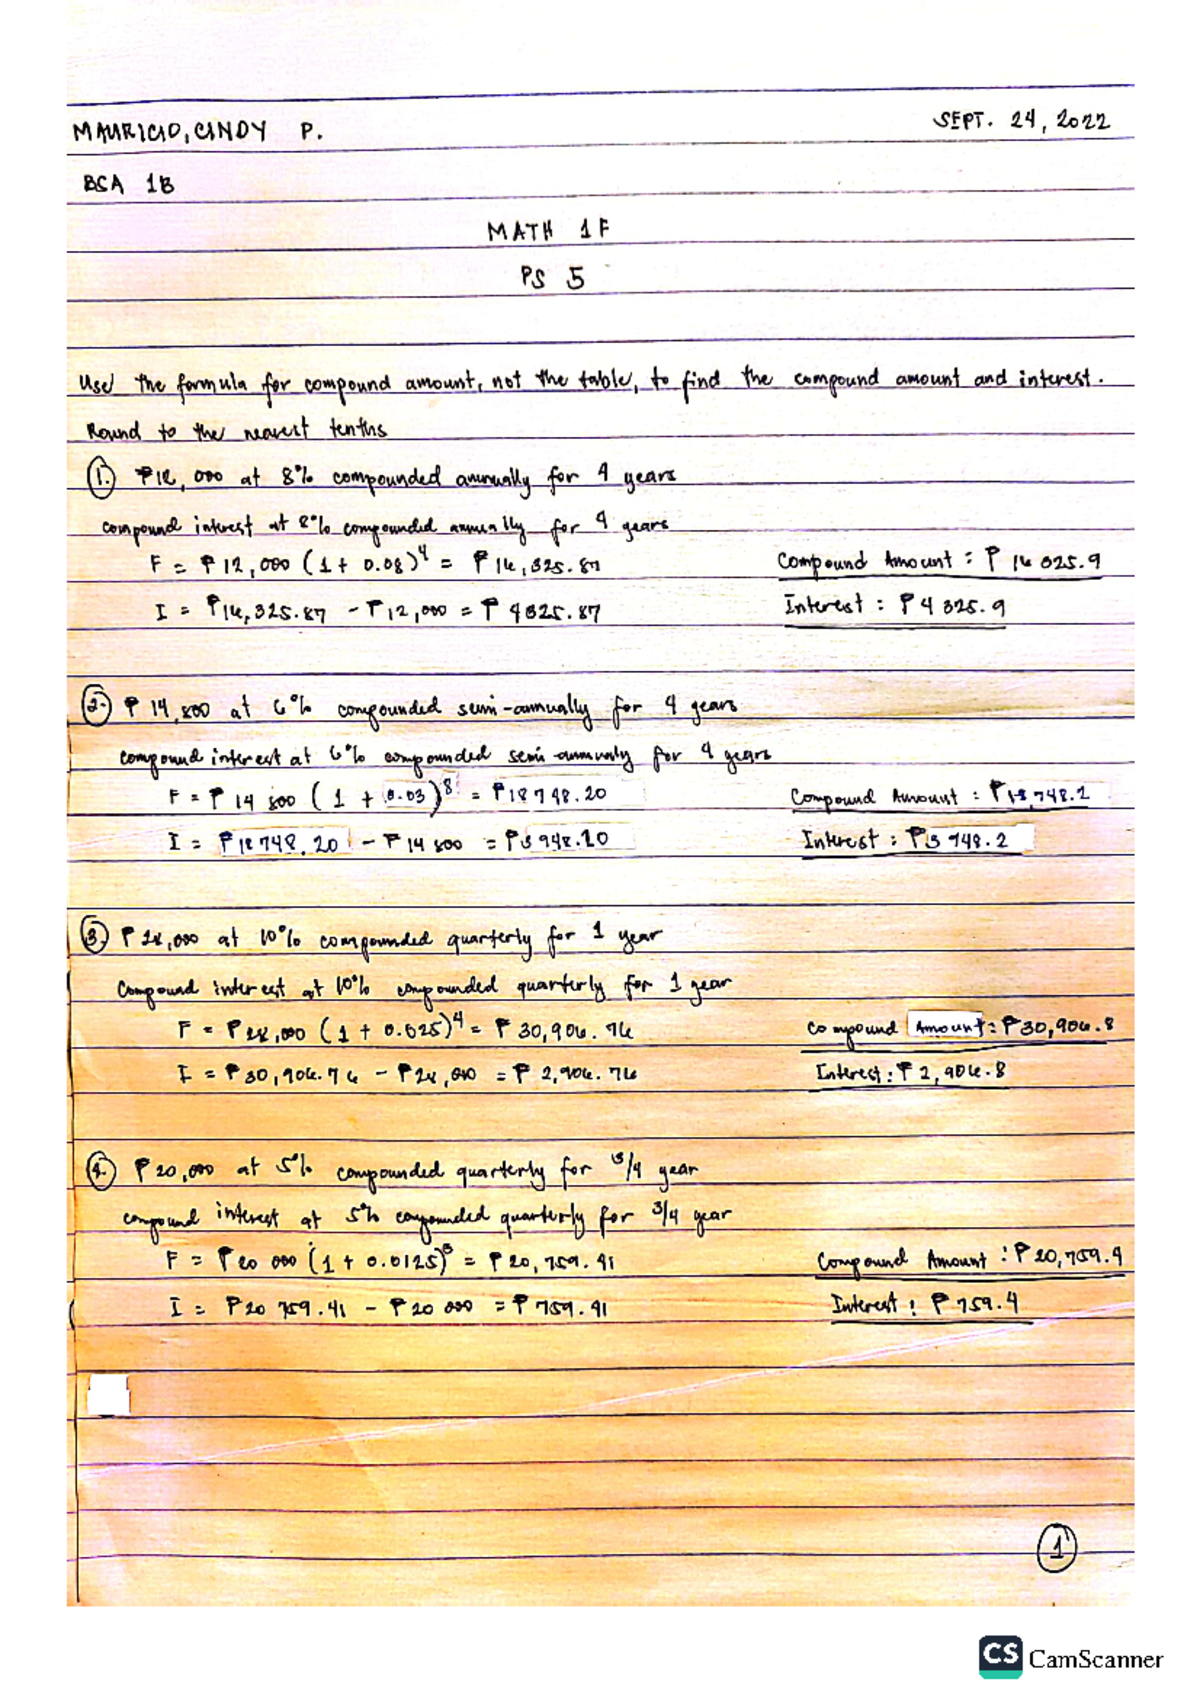 MAURICIO, CINDY P. SEPT. 24, 2022
BCA 1B
MATH 1F
PS 5
Use the formula for compound amount, not the table, to find the compound amount and interest.
Round to the nearest tenths
1. ₱12,000 at 8% compounded annually for 4 years
compound interest at 8% compounded annually for 4 years
F = ₱12,000 (1 + 0.08)⁴ = ₱16,325.87 Compound Amount : ₱16 325.9
I = ₱16,325.87 - ₱12,000 = ₱4325.87 Interest : ₱4 325.9
2. ₱14,800 at 6% compounded semi-annually for 4 years
compound interest at 6% compounded semi-annualy for 4 years
F = ₱14 800 (1 + 0.03)⁸ = ₱18 748.20 Compound Amount : ₱18,748.2
I = ₱18 748.20 - ₱14 800 = ₱3 948.20 Interest : ₱3 948.2
3. ₱28,000 at 10% compounded quarterly for 1 year
Compound interest at 10% compounded quarterly for 1 year
F = ₱28,000 (1 + 0.025)⁴ = ₱30,906.76 Compound Amount : ₱30,906.8
I = ₱30,906.76 - ₱28,000 = ₱2,906.76 Interest : ₱2,906.8
4. ₱20,000 at 5% compounded quarterly for 3/4 year
compound interest at 5% compounded quarterly for 3/4 year
F = ₱20 000 (1 + 0.0125)³ = ₱20,759.41 Compound Amount : ₱20,759.4
I = ₱20 759.41 - ₱20 000 = ₱759.41 Interest : ₱759.4
1
CS CamScanner